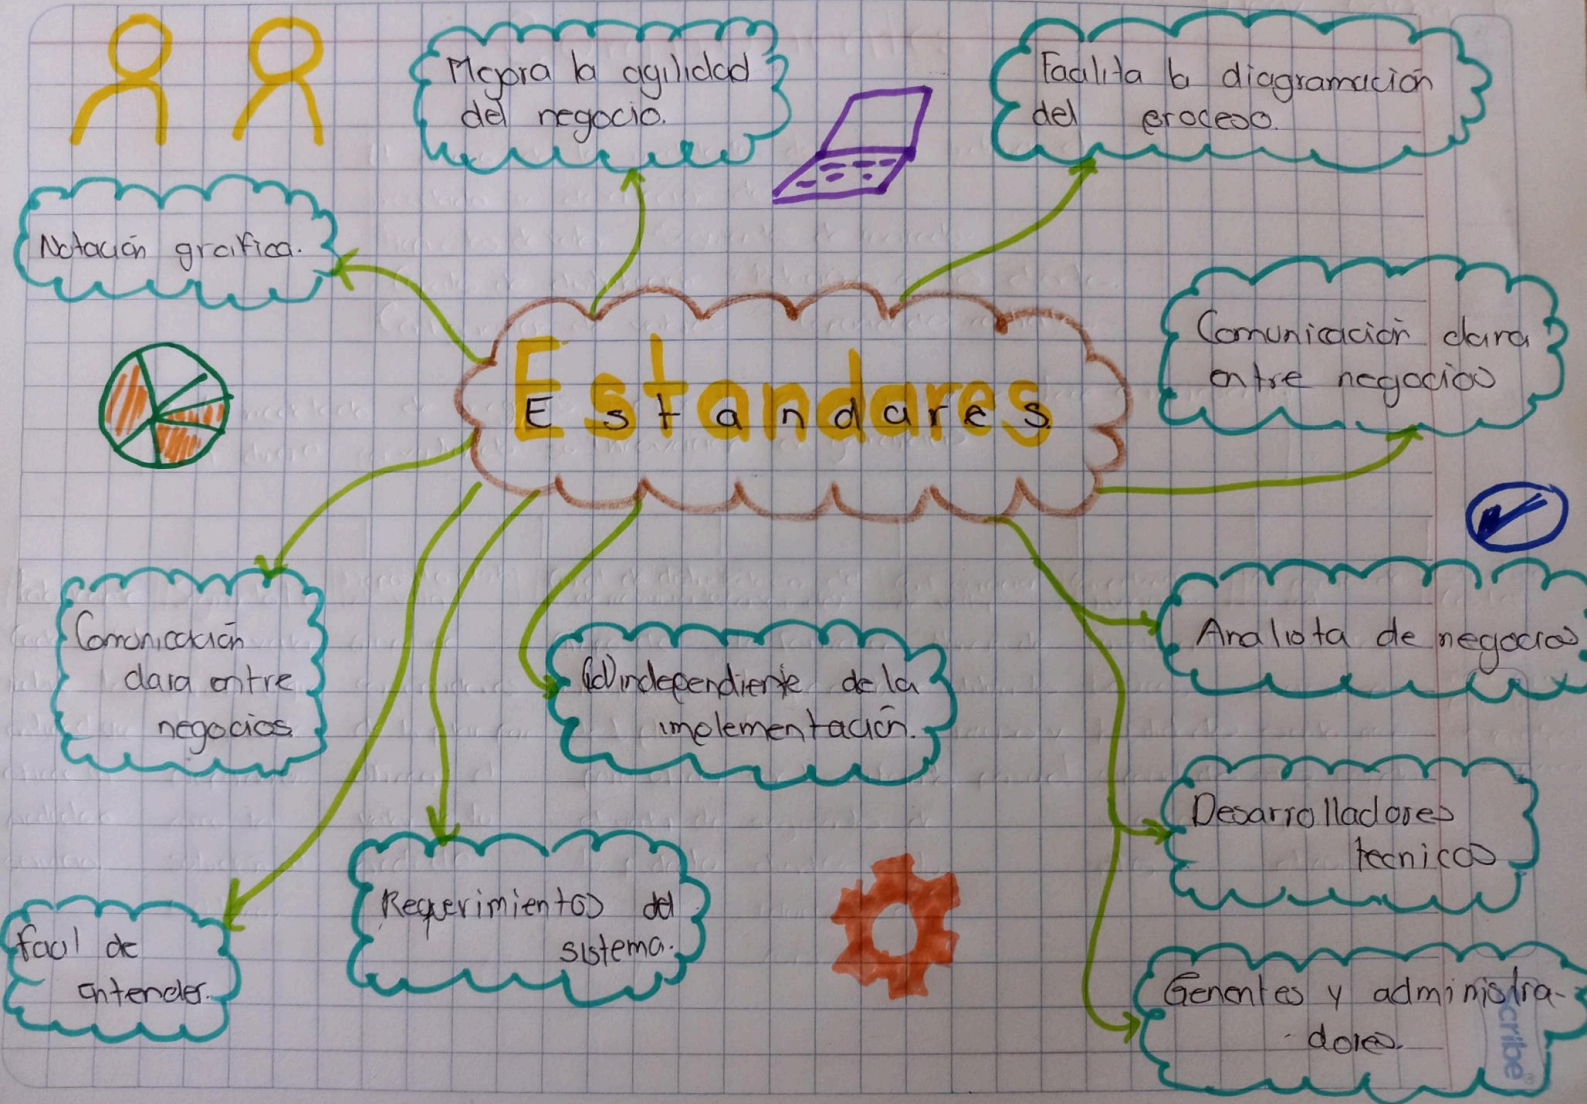 Mejora la agilidad
del negocio.
Facilita la diagramación
del proceso.
Notación grafica.
Comunicación clara
entre negocios
Estandares
Estandares
Comunicación
clara entre
negocios.
independiente de la
implementación.
Analista de negocios
Desarrolladores
tecnicos
Requerimientos del
sistema.
facil de
entender.
Gerentes y administra-
- dores.
scribe